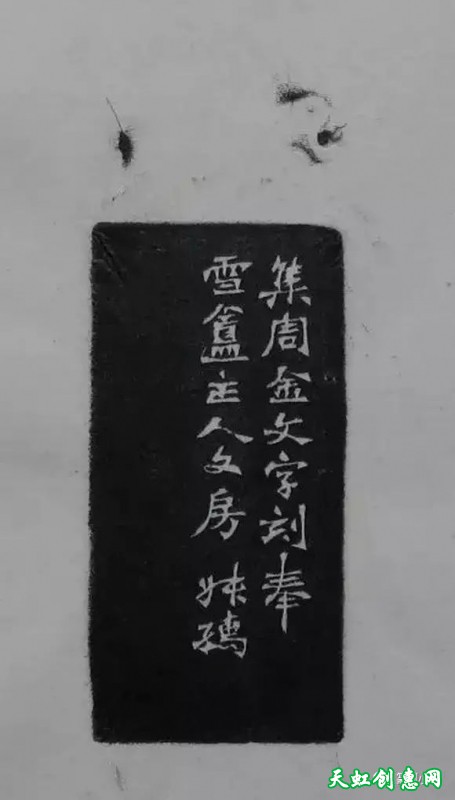 集周金文字刻奉
雪盦主人文房 妹璚
天虹创惠网